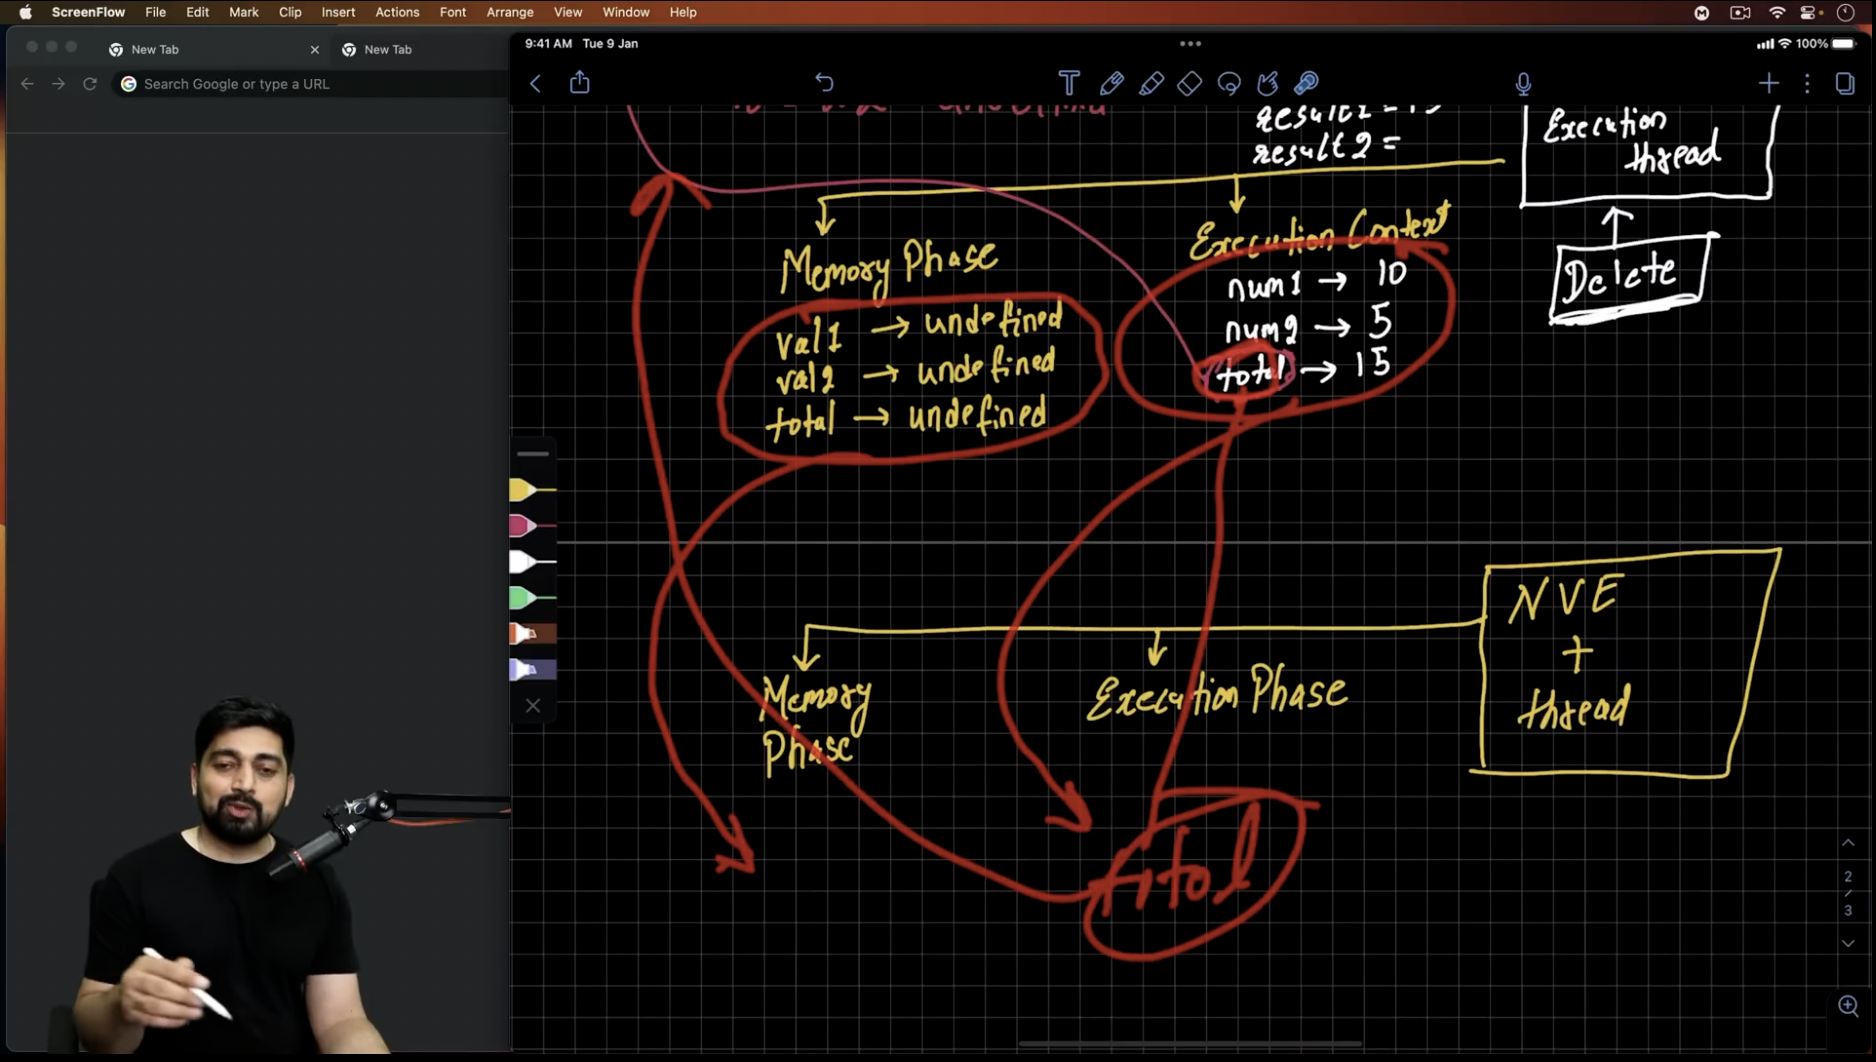 ScreenFlow File Edit Mark Clip Insert Actions Font Arrange View Window Help
New Tab
New Tab
Search Google or type a URL
9:41 AM Tue 9 Jan
100%
result2 =
Execution
thread
Memory Phase
Execution Context
Delete
val1 → undefined
val2 → undefined
total → undefined
num1 → 10
num2 → 5
total → 15
NVE
+
thread
Memory
Phase
Execution Phase
total
2
/
3